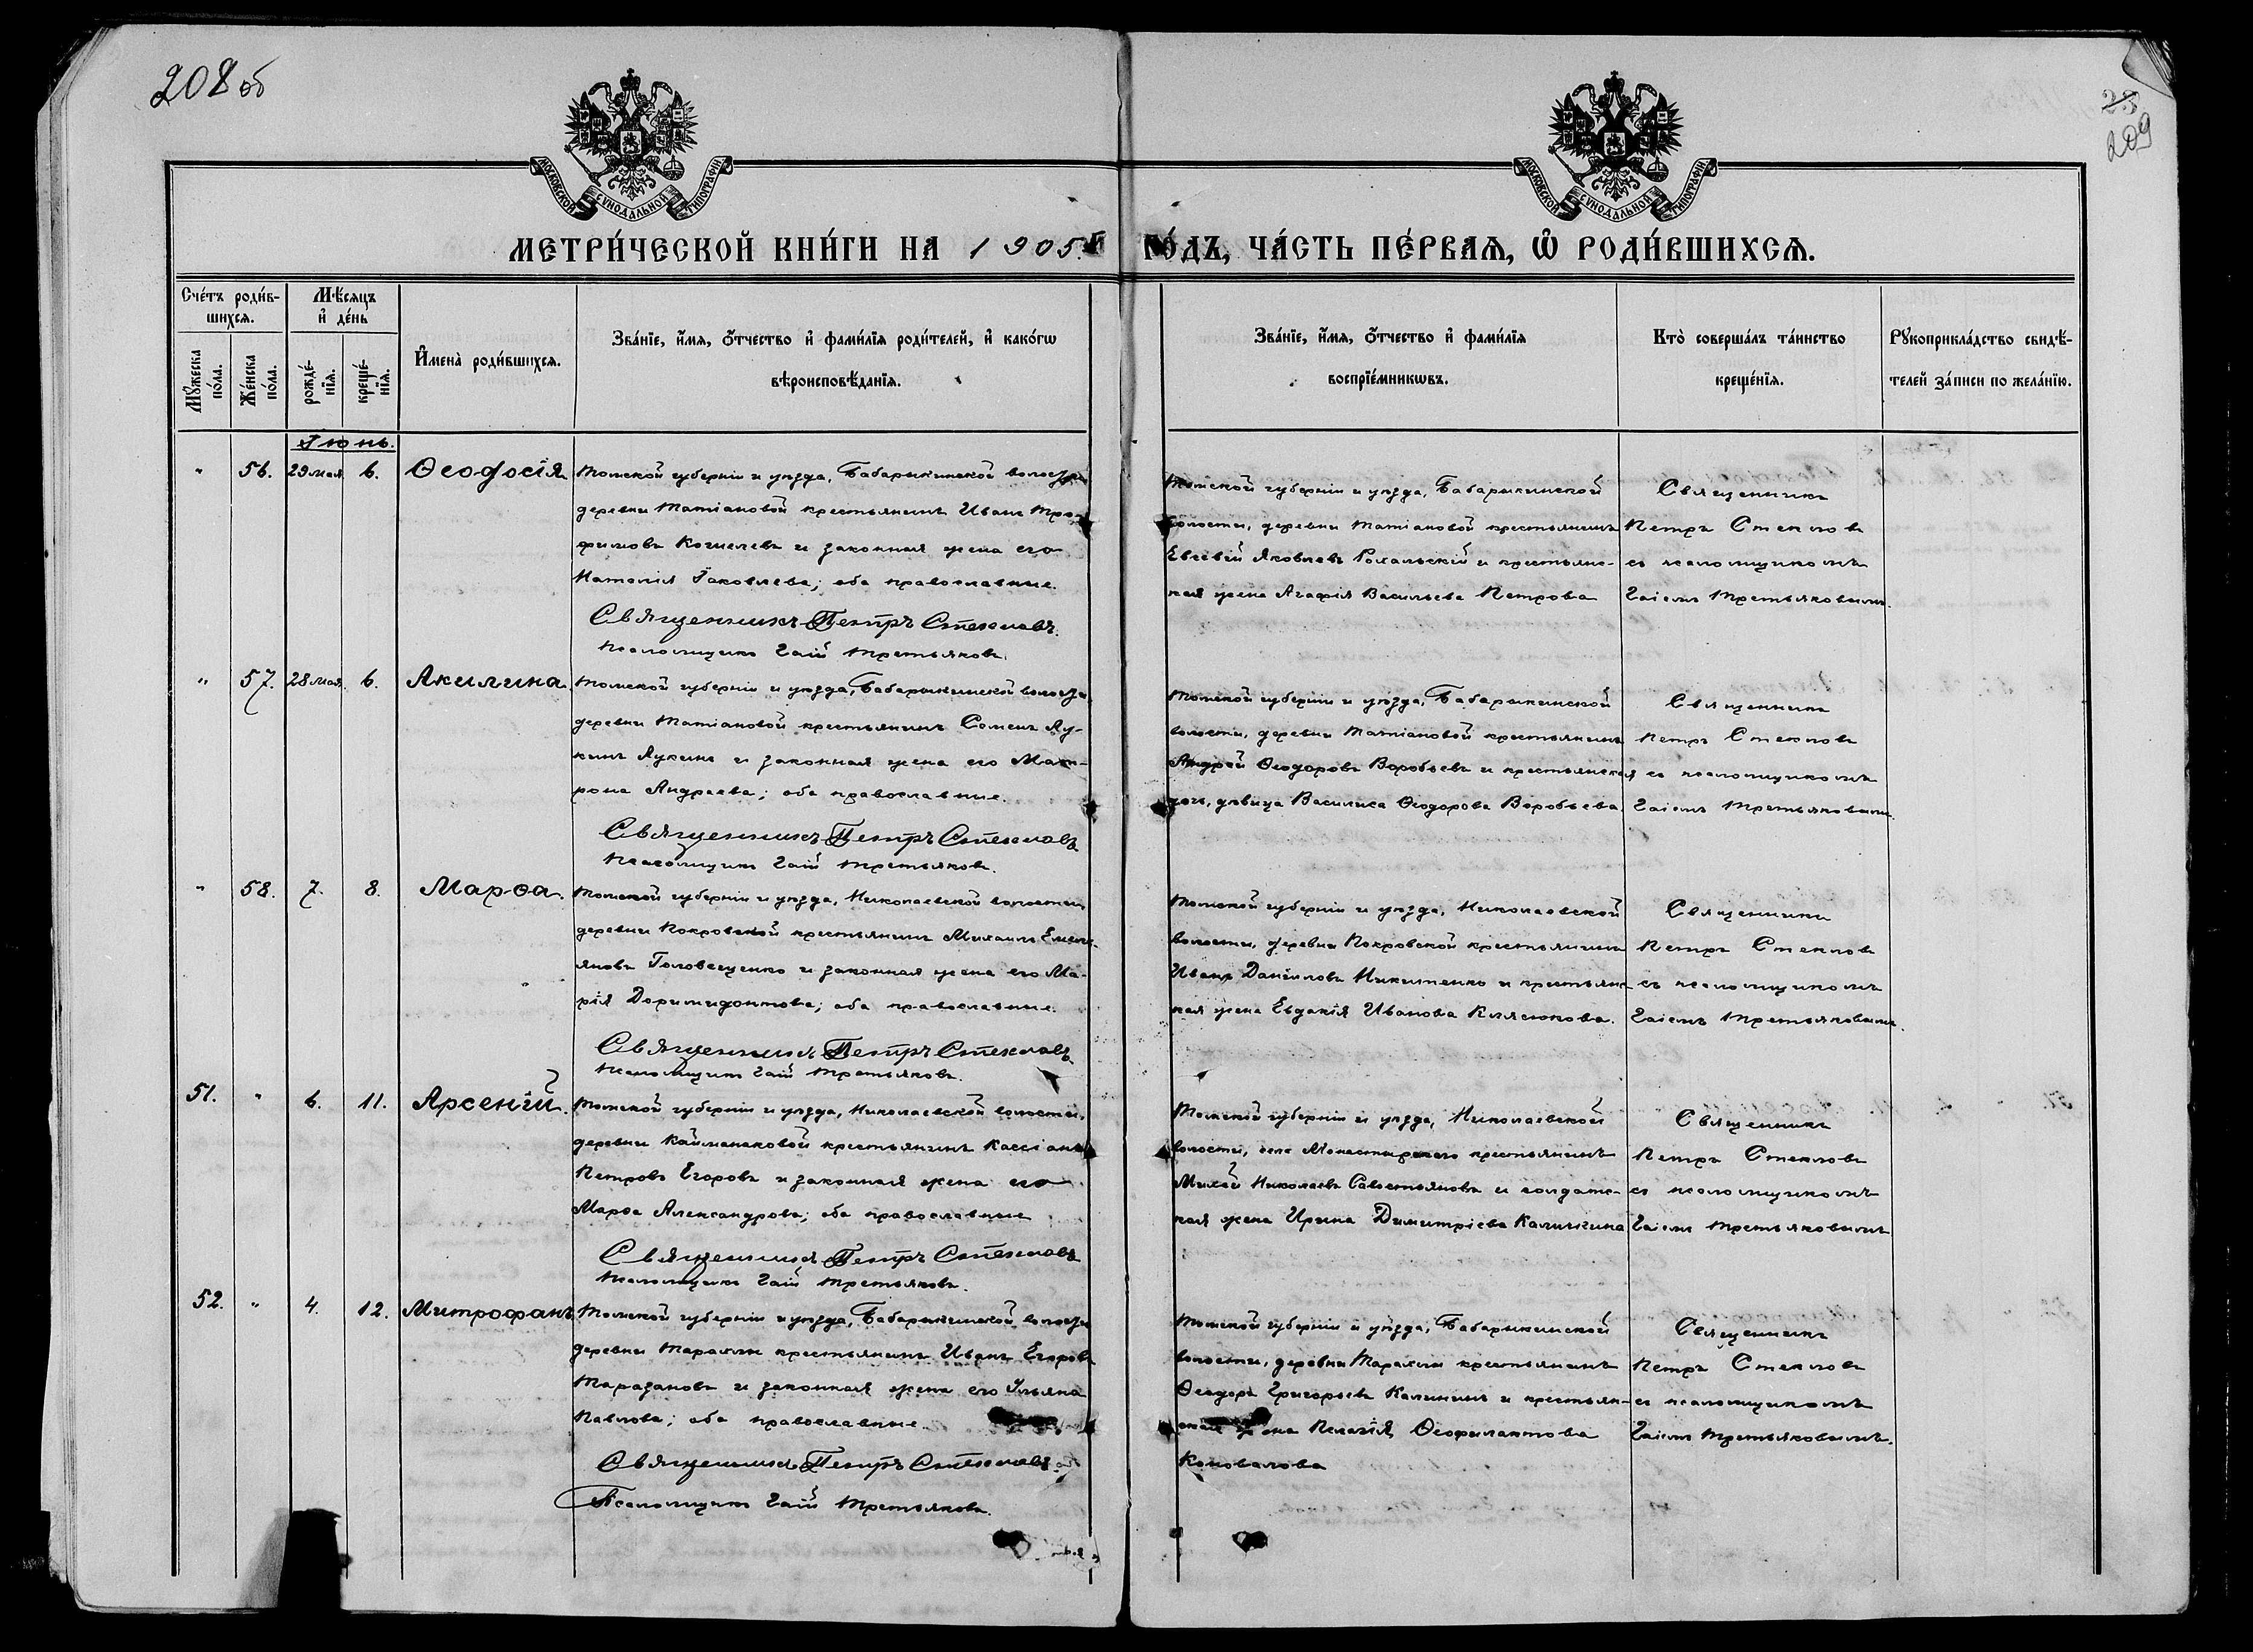 208 об
25
209
МОСКОВСКОЙ СУНОДАЛЬНОЙ ТИПОГРАФІИ
МОСКОВСКОЙ СУНОДАЛЬНОЙ ТИПОГРАФІИ
МЕТРИ́ЧЕСКОЙ КНИ́ГИ НА 1905 Г ГО́ДЪ, ЧА́СТЬ ПЕ́РВАѦ, Ѡ҆ РОДИ́ВШИХСѦ.
Сче́тъ роди́в-
шихсѧ.
Мꙋ́жеска по́ла.
Же́нска по́ла.
Мѣ́сяцъ
и҆ де́нь
рожде́-
нїѧ.
креще́-
нїѧ.
И҆мена̀ роди́вшихсѧ.
Зва́нїе, и҆́мѧ, ѻ҆́тчество и҆ фами́лїѧ роди́телей, и҆ како́гѡ
вѣроисповѣ́данїѧ.
Зва́нїе, и҆́мѧ, ѻ҆́тчество и҆ фами́лїѧ
воспрїе́мникѡвъ.
Кто̀ соверша́лъ та́инство
креще́нїѧ.
Рꙋкоприкла́дство свидѣ́-
телей за́писи по жела́нїю.
Іюнь.
" 56. 29 мая 6. Ѳеодосія
Томской губерніи и уѣзда, Бабарыкинской волости
деревни Татіановой крестьянинъ Иванъ Тро-
фимовъ Кошелевъ и законная жена его
Наталія Іаковлева; оба православные.
Священникъ Петръ Стекловъ.
Псаломщикъ Гаій Третьяковъ.
Томской губерніи и уѣзда, Бабарыкинской
волости, деревни Татіановой крестьянинъ
Евсевій Яковлевъ и крестьянс-
кая жена Агафія Васильева Петрова
Священникъ
Петръ Стекловъ
съ псаломщикомъ
Гаіемъ Третьяковымъ.
" 57. 28 мая 6. Акилина.
Томской губерніи и уѣзда, Бабарыкинской волости
деревни Татіановой крестьянинъ Семенъ Лу-
кинъ Лукинъ и законная жена его Мат-
рона Андреева; оба православные.
Священникъ Петръ Стекловъ
Псаломщикъ Гаій Третьяковъ.
Томской губерніи и уѣзда, Бабарыкинской
волости, деревни Татіановой крестьянинъ
Андрей Ѳеодоровъ Воробьевъ и крестьянская
дочь, дѣвица Василиса Ѳеодорова Воробьева
Священникъ
Петръ Стекловъ
съ псаломщикомъ
Гаіемъ Третьяковымъ.
" 58. 7. 8. Марѳа.
Томской губерніи и уѣзда, Николаевской волости,
деревни Покровской крестьянинъ Михаилъ Емель-
яновъ Головещенко и законная жена его Ма-
рія Доримидонтова; оба православные.
Священникъ Петръ Стекловъ
Псаломщикъ Гаій Третьяковъ.
Томской губерніи и уѣзда, Николаевской
волости, деревни Покровской крестьянинъ
Иванъ Даніиловъ Никитенко и крестьянс-
кая жена Евдокія Иванова
Священникъ
Петръ Стекловъ
съ псаломщикомъ
Гаіемъ Третьяковымъ.
51. " 6. 11. Арсеній.
Томской губерніи и уѣзда, Николаевской волости,
деревни Каймонаковой крестьянинъ Кассіанъ
Петровъ Егоровъ и законная жена его
Марѳа Александрова; оба православные
Священникъ Петръ Стекловъ
Псаломщикъ Гаій Третьяковъ.
Томской губерніи и уѣзда, Николаевской
волости, села Монастырскаго крестьянинъ
Михей Николаевъ Савостьяновъ и солдатс-
кая жена Ирина Димитріева Калинина
Священникъ
Петръ Стекловъ
съ псаломщикомъ
Гаіемъ Третьяковымъ
52. " 4. 12. Митрофанъ
Томской губерніи и уѣзда, Бабарыкинской волости
деревни крестьянинъ Иванъ Егоровъ
Таразановъ и законная жена его Ульяна
Павлова; оба православные.
Священникъ Петръ Стекловъ
Псаломщикъ Гаій Третьяковъ.
Томской губерніи и уѣзда, Бабарыкинской
волости, деревни крестьянинъ
Ѳеодоръ Григорьевъ Калининъ и крестьян-
ская жена Пелагія Ѳеофилактова
Коновалова
Священникъ
Петръ Стекловъ
съ псаломщикомъ
Гаіемъ Третьяковымъ.